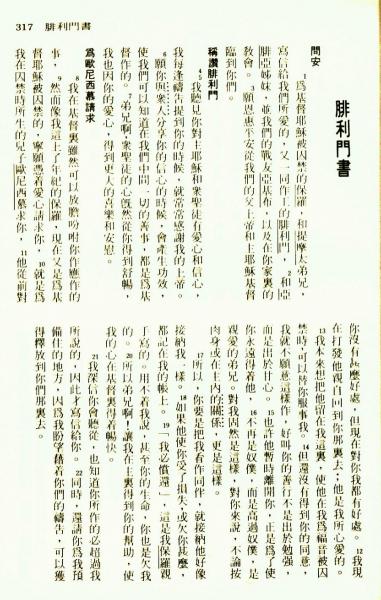 317 腓利門書
腓利門書
問安
1爲基督耶穌被囚禁的保羅，和提摩太弟兄，
寫信給我們所愛的、又一同作工的腓利門，2和亞
腓亞姊妹，並我們的戰友亞基布，以及在你家裏的
教會。3願恩惠平安從我們的父上帝和主耶穌基督
臨到你們。
稱讚腓利門
4 5我聽見你對主耶穌和衆聖徒有愛心和信心，
我每逢禱告提到你的時候，就常常感謝我的上帝。
6願你與衆人分享你的信心的時候，會產生功效，
使我們可以知道在我們中間一切的善事，都是爲基
督作的。7弟兄啊，衆聖徒的心旣然從你得到舒暢，
我也因你的愛心，得到更大的喜樂和安慰。
爲歐尼西慕請求
8我在基督裏雖然可以放膽吩咐你作應作的
事，9然而像我這上了年紀的保羅，現在又是爲基
督耶穌被囚禁的，寧願憑着愛心請求你，10就是爲
我在囚禁時所生的兒子歐尼西慕求你，11他從前對
你沒有甚麼好處，但現在對你我都有好處。12我現
在打發他親自回到你那裏去；他是我所心愛的。
13我本來想把他留在我這裏，使他在我爲福音被囚
禁時，可以替你服事我。14但還沒有得到你的同意，
我就不願意這樣作，好叫你的善行不是出於勉強，
而是出於甘心。15也許他暫時離開你，正是爲了使
你永遠得着他，16不再是奴僕，而是高過奴僕，是
親愛的弟兄。對我固然是這樣，對你來說，不論按
肉身或在主內的關係，更是這樣。
17所以，你要是把我看作同伴，就接納他好像
接納我一樣。18如果他使你受了損失，或欠你甚麼，
都記在我的帳上。19「我必償還」，這是我保羅親
手寫的。用不着我說，甚至你的生命，你也是欠我
的。20所以弟兄啊！讓我在主裏得到你的幫助，使
我的心在基督裏得着暢快。
21我深信你會聽從，也知道你所作的必超過我
所說的，因此才寫信給你。22同時，還請你爲我預
備住的地方，因爲我盼望藉着你們的禱告，可以獲
得釋放到你們那裏去。